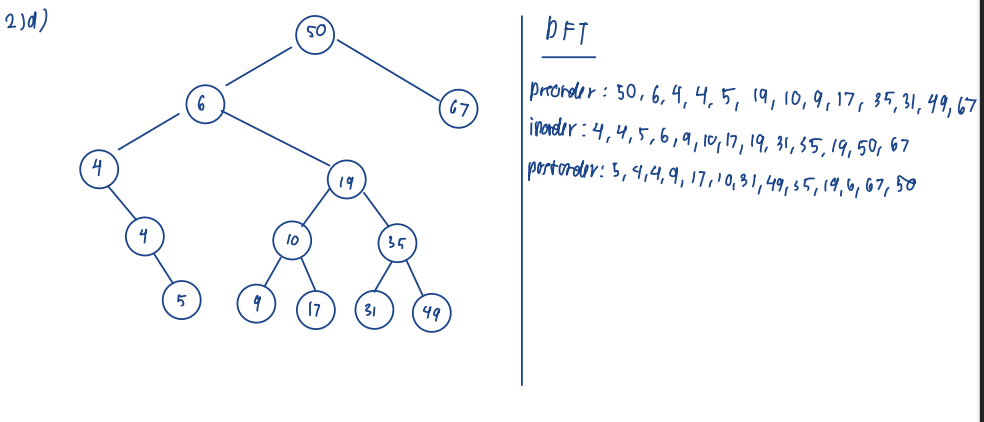 2)d)
50
6
67
4
19
4
10
35
5
9
17
31
49
DFT
preorder : 50, 6, 4, 4, 5, 19, 10, 9, 17, 35, 31, 49, 67
inorder : 4, 4, 5, 6, 9, 10, 17, 19, 31, 35, 19, 50, 67
postorder : 5, 4, 4, 9, 17, 10, 31, 49, 35, 19, 6, 67, 50